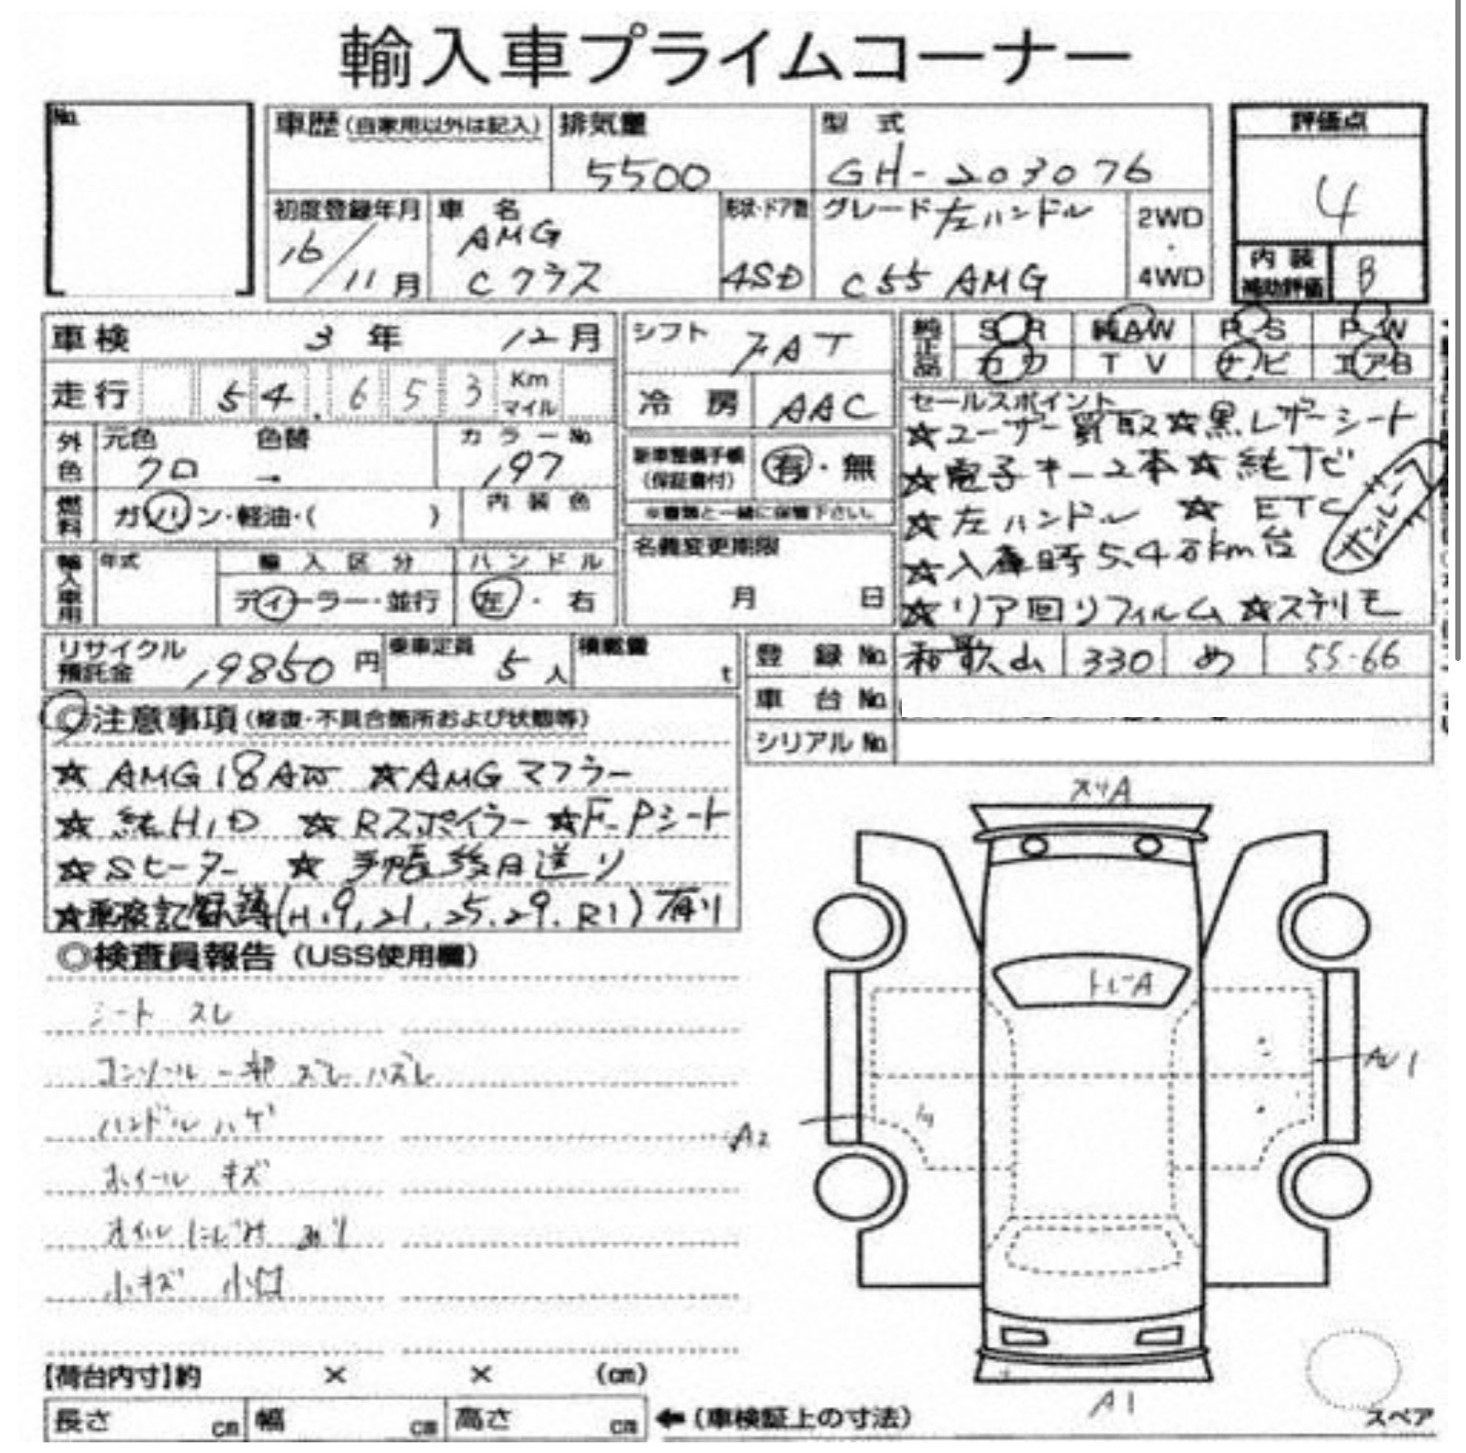 輸入車プライムコーナー
No.
車歴(自家用以外は記入)
排気量
5500
型 式
GH-203076
評価点
4
初度登録年月
16/11月
車 名
AMG
Cクラス
形状・ドア数
4SD
グレード 左ハンドル
C55 AMG
2WD
・
4WD
内 装
補助評価
B
車検 3年 12月
シフト
7AT
純正品
SR 純AW PS PW
カワ TV ナビ エアB
走行 54.653 Km
マイル
冷 房 AAC
セールスポイント
☆ユーザー買取☆黒レザーシート
☆電子キー2本☆純ナビ
☆左ハンドル ☆ETC
サンルーフ
☆入庫時5.4万km台
☆リア回りフィルム ☆ステリモ
外色
元色 色替
クロ →
カラーNo.
197
新車整備手帳
(保証書付)
有・無
※書類と一緒に保管下さい。
燃料
ガソリン・軽油・( )
内装色
名義変更期限
月 日
輸入車用
年式
輸入区分
ディーラー・並行
ハンドル
左・右
リサイクル
預託金
,9850円
乗車定員
5人
積載量
t
登録No. 和歌山 330 め 55-66
車台No.
シリアルNo.
◎注意事項(修復・不具合箇所および状態等)
☆AMG18AW ☆AMGマフラー
☆純HID ☆Rスポイラー ☆F-Pシート
☆Sヒーター ☆手帳後日送り
☆車検記録簿(H.19,21,25.29.R1)有り
◎検査員報告(USS使用欄)
シート スレ
コンソール一部 ズレ ハズレ
ハンドル ハゲ
ホイール キズ
オイルにじみ あり
小キズ 小凹
スリA
トビA
AU1
A2
A1
【荷台内寸】約 × × (cm)
長さ cm 幅 cm 高さ cm ←(車検証上の寸法)
スペア